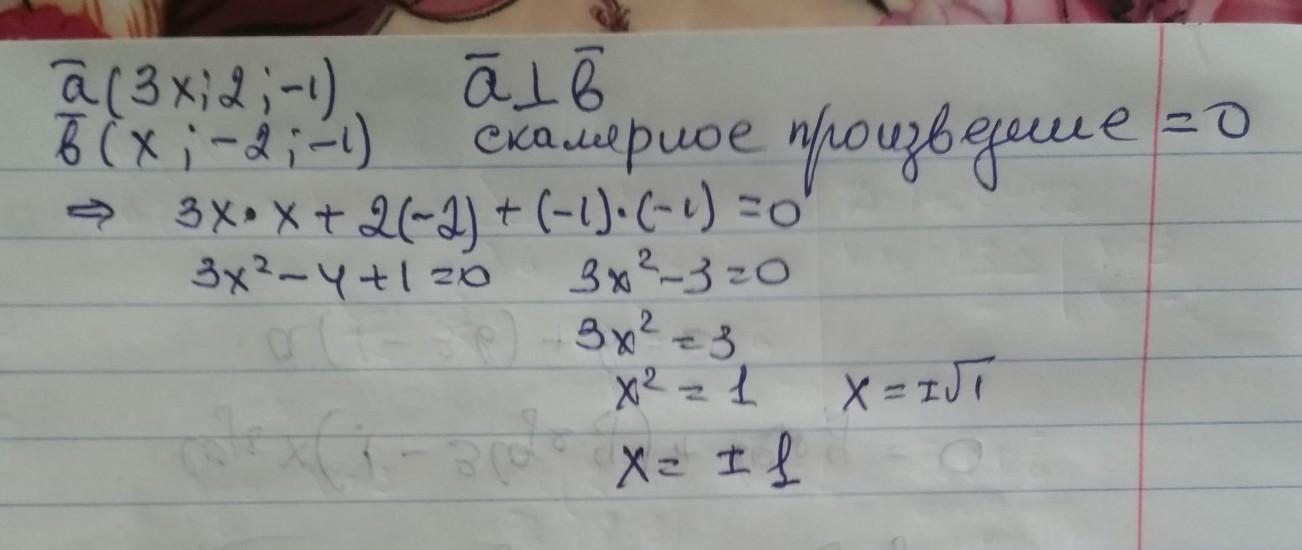 a̅ (3x; 2; -1)    a̅ ⊥ b̅
b̅ (x; -2; -1)    скалярное произведение = 0
⇒ 3x · x + 2(-2) + (-1) · (-1) = 0
3x² - 4 + 1 = 0    3x² - 3 = 0
3x² = 3
x² = 1    x = ±√1
x = ±1